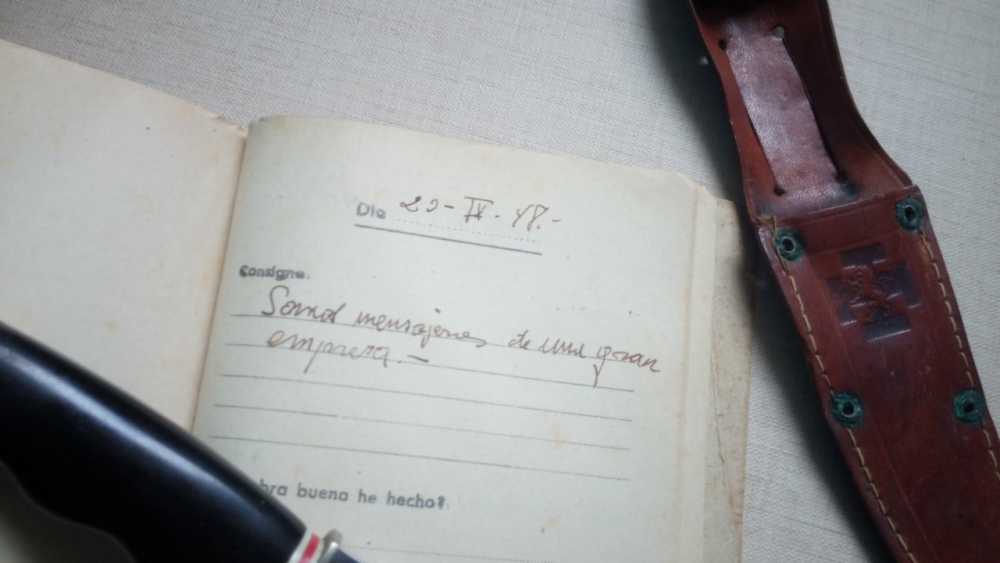 Día 20-IX-48.-
Consigna.
Somos mensajeros de una gran
empresa.-
bra buena he hecho?